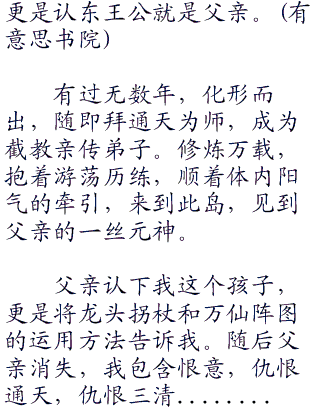 更是认东王公就是父亲。(有
意思书院)
有过无数年，化形而
出，随即拜通天为师，成为
截教亲传弟子。修炼万载，
抱着游荡历练，顺着体内阳
气的牵引，来到此岛，见到
父亲的一丝元神。
父亲认下我这个孩子，
更是将龙头拐杖和万仙阵图
的运用方法告诉我。随后父
亲消失，我包含恨意，仇恨
通天，仇恨三清........